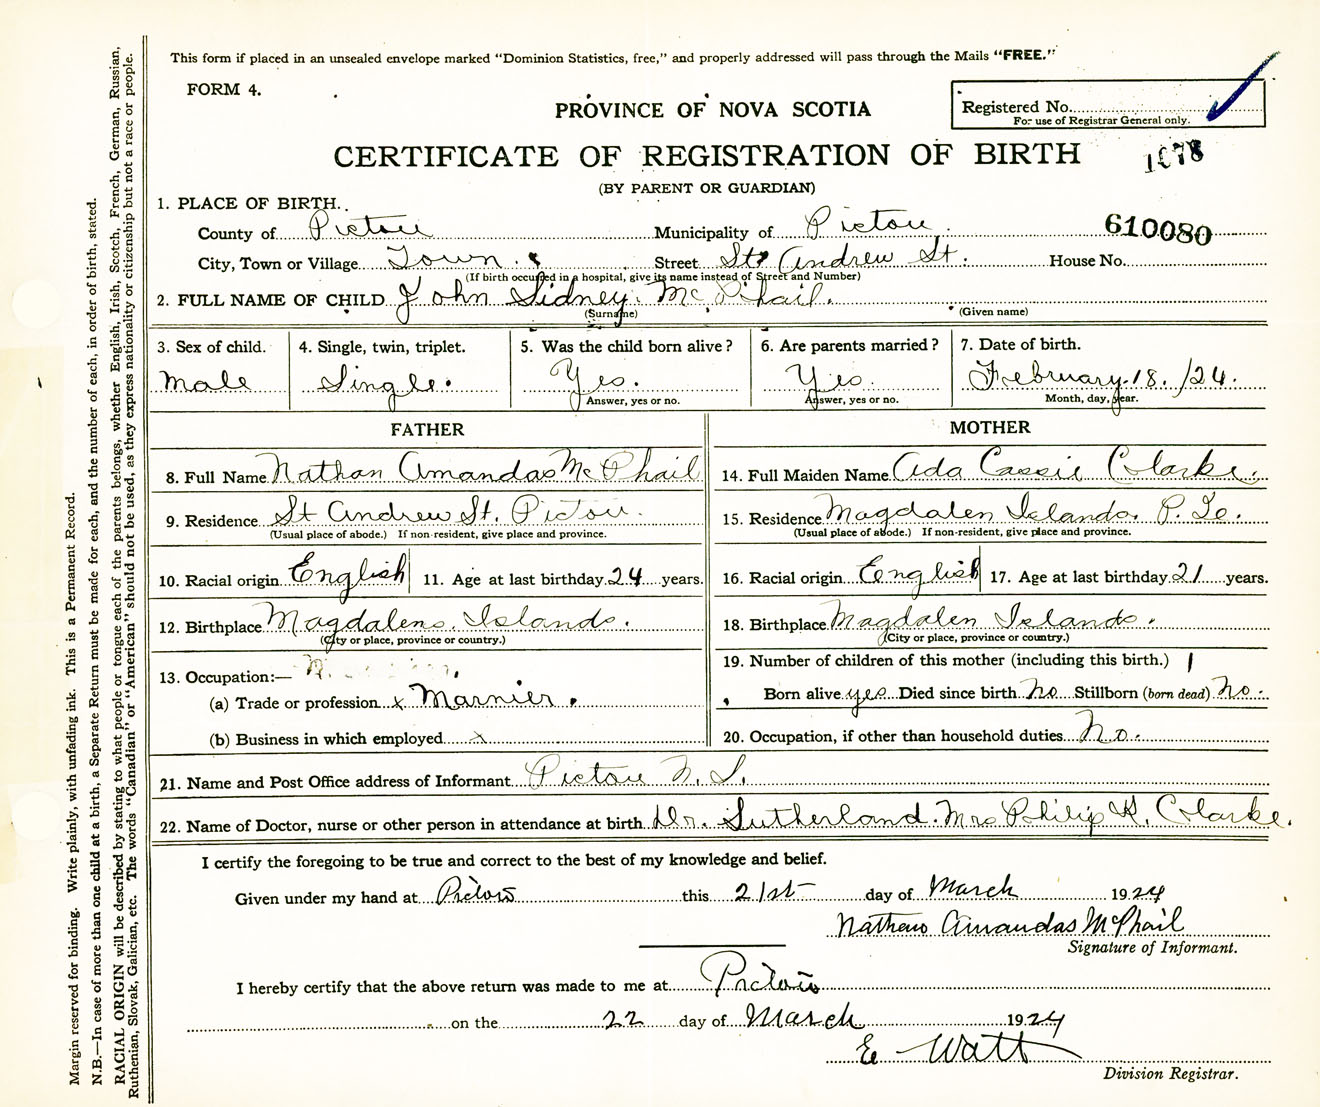 This form if placed in an unsealed envelope marked "Dominion Statistics, free," and properly addressed will pass through the Mails "FREE."
FORM 4.
PROVINCE OF NOVA SCOTIA
Registered No.
For use of Registrar General only.
CERTIFICATE OF REGISTRATION OF BIRTH
1078
(BY PARENT OR GUARDIAN)
1. PLACE OF BIRTH.
County of Pictou Municipality of Pictou 610080
City, Town or Village Town. Street St. Andrew St. House No.
(If birth occurred in a hospital, give its name instead of Street and Number)
2. FULL NAME OF CHILD John Sidney McPhail.
(Surname) (Given name)
3. Sex of child. 4. Single, twin, triplet. 5. Was the child born alive? 6. Are parents married? 7. Date of birth.
Male Single. Yes. Yes. February. 18. /24.
Answer, yes or no. Answer, yes or no. Month, day, year.
FATHER MOTHER
8. Full Name Nathan Amandas McPhail 14. Full Maiden Name Ada Cassie Clarke.
9. Residence St Andrew St. Pictou. 15. Residence Magdalen Islands. P.
(Usual place of abode.) If non-resident, give place and province. (Usual place of abode.) If non-resident, give place and province.
10. Racial origin English 11. Age at last birthday 24 years. 16. Racial origin English 17. Age at last birthday 21 years.
12. Birthplace Magdalens. Islands. 18. Birthplace Magdalen Islands.
(City or place, province or country.) (City or place, province or country.)
13. Occupation:— 19. Number of children of this mother (including this birth.) 1
(a) Trade or profession x Marnier. Born alive yes Died since birth No Stillborn (born dead) No.
(b) Business in which employed x 20. Occupation, if other than household duties No.
21. Name and Post Office address of Informant Pictou N. S.
22. Name of Doctor, nurse or other person in attendance at birth Dr. Sutherland. Mrs Philip K. Clarke.
I certify the foregoing to be true and correct to the best of my knowledge and belief.
Given under my hand at Pictou this 21st day of March 1924
Nathan Amandas McPhail
Signature of Informant.
I hereby certify that the above return was made to me at Pictou
on the 22 day of March 1924
E Watt
Division Registrar.
Margin reserved for binding. Write plainly, with unfading ink. This is a Permanent Record.
N.B.—In case of more than one child at a birth, a Separate Return must be made for each, and the number of each, in order of birth, stated.
RACIAL ORIGIN will be described by stating to what people or tongue each of the parents belongs, whether English, Irish, Scotch, French, German, Russian,
Ruthenian, Slovak, Galician, etc. The words "Canadian" or "American" should not be used, as they express nationality or citizenship but not a race or people.